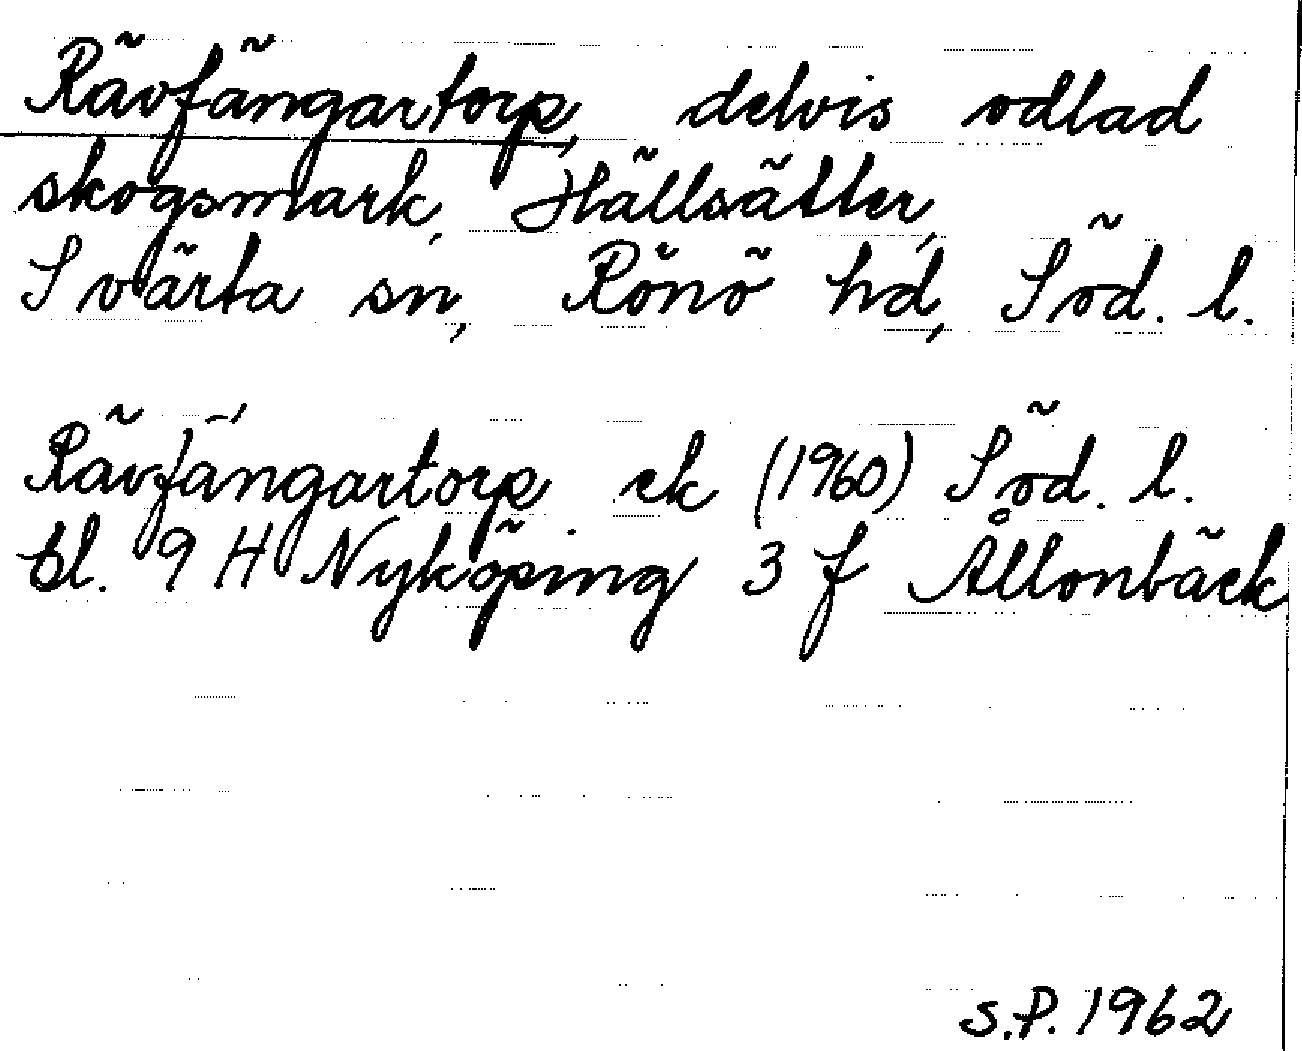 Rävfängartorp, delvis odlad
skogsmark, Hällsätter,
Svärta sn, Rönö hd, Söd. l.
Rävfängartorp ek (1960) Söd. l.
bl. 9 H Nyköping 3 f Ållonbäck
S.P. 1962